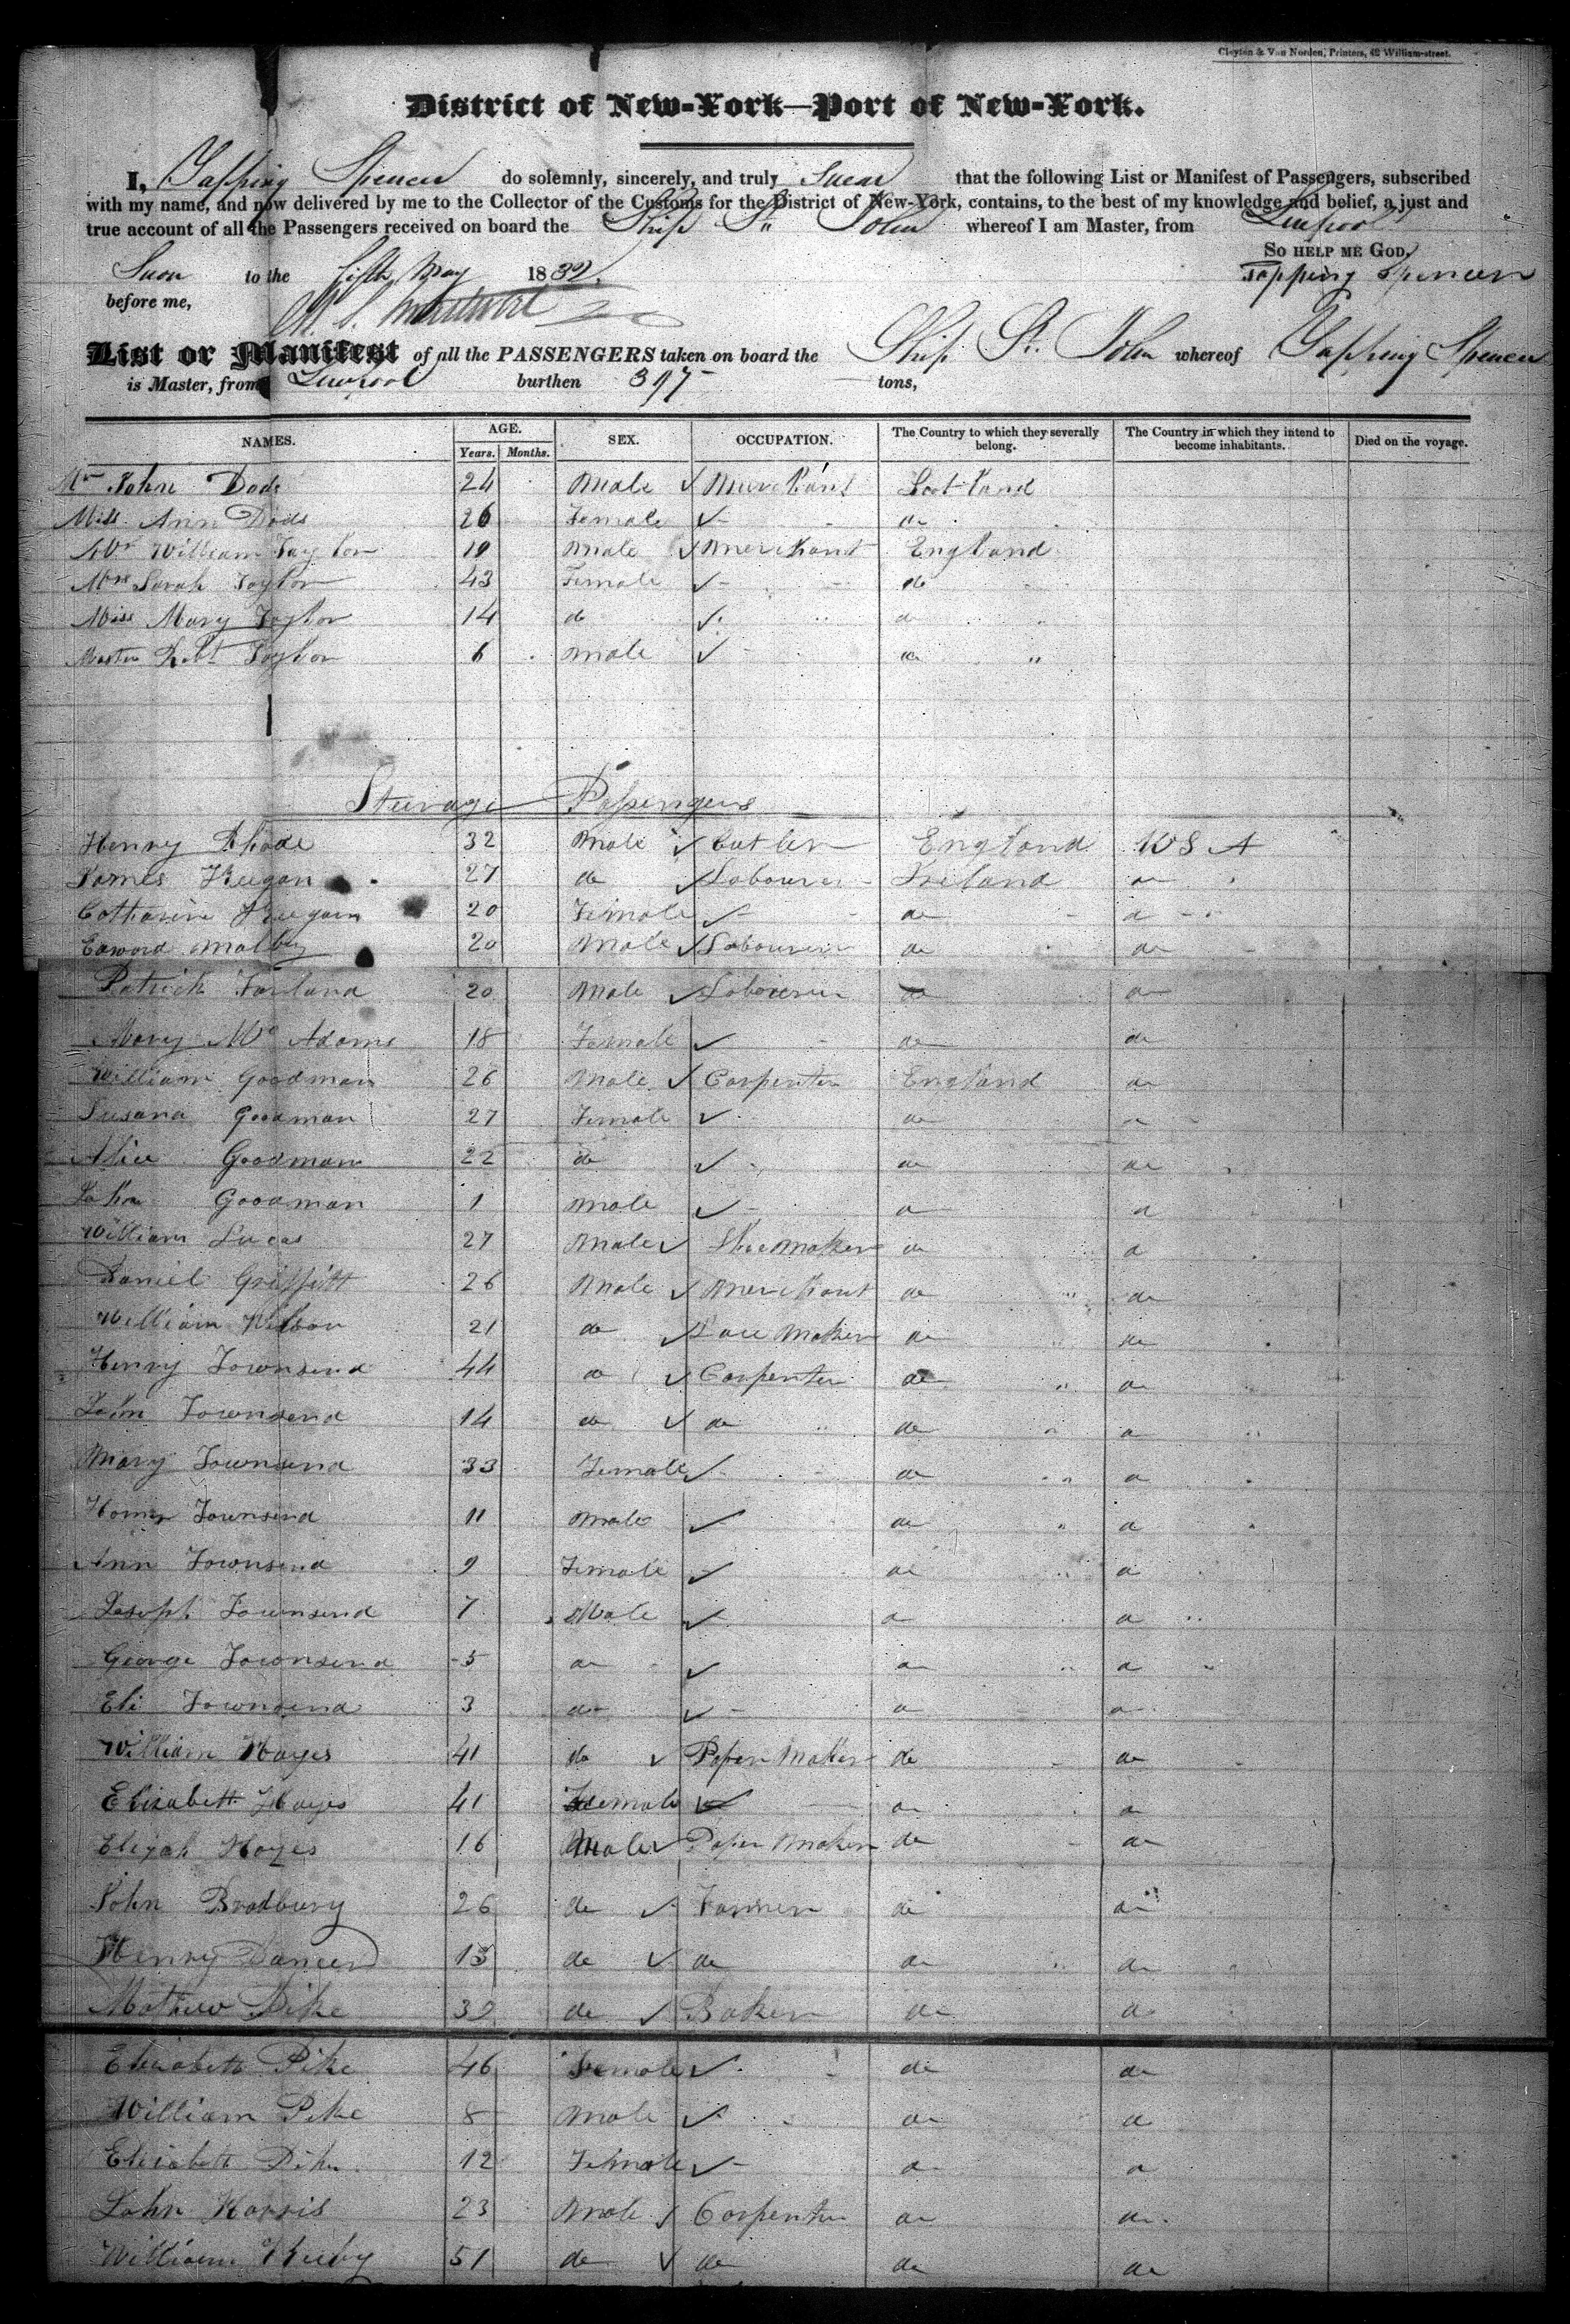 Clayton & Van Norden, Printers, 42 William-street.
District of New-York—Port of New-York.
I, Tapping Spencer do solemnly, sincerely, and truly Swear that the following List or Manifest of Passengers, subscribed
with my name, and now delivered by me to the Collector of the Customs for the District of New-York, contains, to the best of my knowledge and belief, a just and
true account of all the Passengers received on board the Ship St. John whereof I am Master, from Liverpool
So HELP ME GOD.
Sworn to the fifth May 1832. Tapping Spencer
before me,
List or Manifest of all the PASSENGERS taken on board the Ship St. John whereof Tapping Spencer
is Master, from Liverpool burthen 397 tons,
NAMES. AGE. Years. Months. SEX. OCCUPATION. The Country to which they severally belong. The Country in which they intend to become inhabitants. Died on the voyage.
Mr John Dods 24 Male ✓ Merchant Scotland
Miss Ann Dods 26 Female ✓ do
Mr William Taylor 19 Male ✓ Merchant England
Mrs Sarah Taylor 43 Female ✓ do
Miss Mary Taylor 14 do ✓ do
Master Robt Taylor 6 Male ✓ do "
Steerage Passengers
Henry Rhode 32 Male ✓ Cutler England U S A
James Keegan 27 do ✓ Labourer Ireland do
Catharine Keegan 20 Female ✓ do do
Edward Malby 20 Male ✓ Labourer do do
Patrick Farland 20 Male ✓ Labourer do do
Mary Mc Adams 18 Female ✓ do do
William Goodman 26 Male ✓ Carpenter England do
Susana Goodman 27 Female ✓ do do
Alice Goodman 22 do ✓ do do
John Goodman 1 Male ✓ do do
William Lucas 27 Male ✓ Shoe Maker do do
Daniel Griffitt 26 Male ✓ Merchant do do
William Wilson 21 do ✓ Lace Maker do do
Henry Townsend 44 do ✓ Carpenter do do
John Townsend 14 do ✓ do do do
Mary Townsend 33 Female ✓ do do
Townsend 11 Male ✓ do do
Ann Townsend 9 Female ✓ do do
Joseph Townsend 7 Male ✓ do do
George Townsend 5 do ✓ do do
Eli Townsend 3 do ✓ do do
William Hayes 41 do ✓ Paper Maker do do
Elizabeth Hayes 41 Female ✓ do do
Elijah Hayes 16 Male ✓ Paper Maker do do
John Bradbury 26 do ✓ Farmer do do
Henry Dancer 15 do ✓ do do do
Mathew Pike 39 do ✓ Baker do do
Elizabeth Pike 46 Female ✓ do do
William Pike 8 Male ✓ do do
Elizabeth Pike 12 Female ✓ do do
John Harris 23 Male ✓ Carpenter do do
William 51 do ✓ do do do